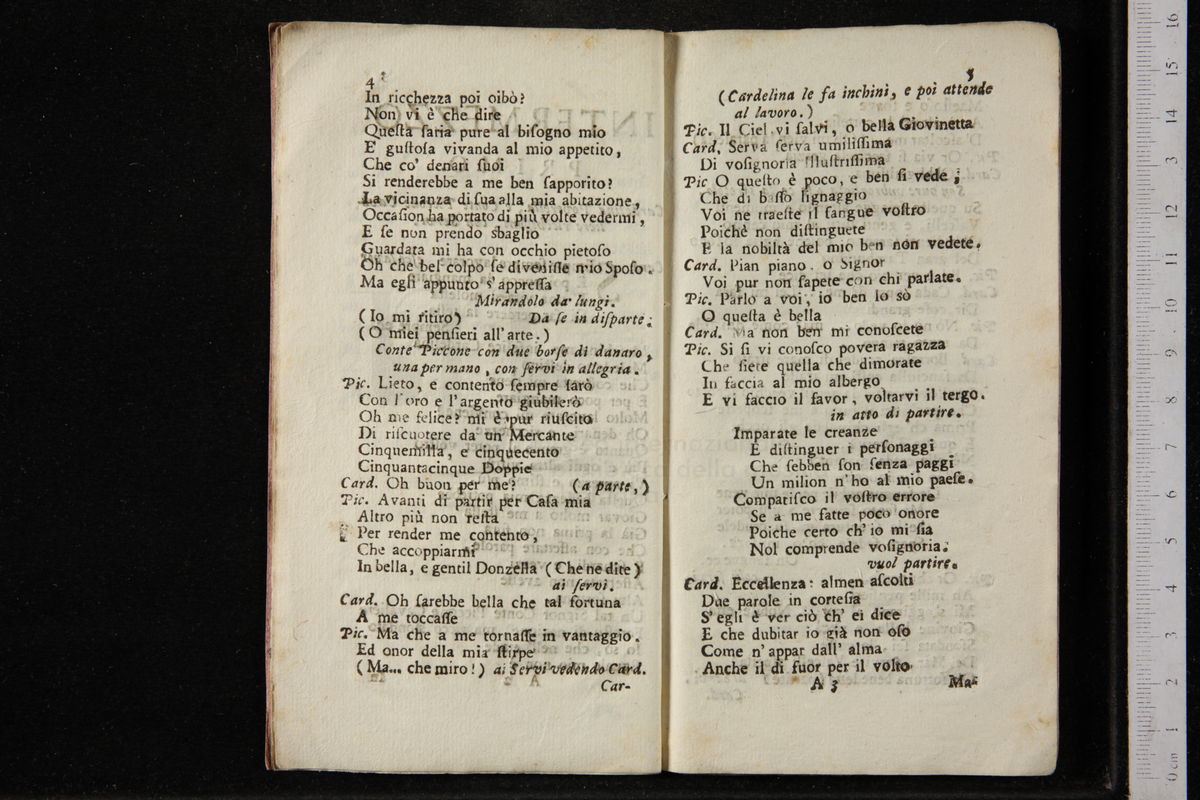 4
In ricchezza poi oibò?
Non vi è che dire
Queſta ſaria pure al biſogno mio
E' guſtoſa vivanda al mio appetito,
Che co' denari ſuoi
Si renderebbe a me ben ſapporito?
La vicinanza di ſua alla mia abitazione,
Occaſion ha portato di più volte vedermi,
E ſe non prendo sbaglio
Guardata mi ha con occhio pietoſo
Oh che bel colpo ſe diveniſſe mio Spoſo.
Ma egli appunto s'appreſſa
Mirandolo da lungi.
(Io mi ritiro) Da ſe in diſparte;
(O miei penſieri all'arte.)
Conte Piccone con due borſe di danaro,
una per mano, con ſervi in allegria.
Pic. Lieto, e contento ſempre ſarò
Con l'oro e l'argento giubilerò
Oh me felice? mi è pur riuſcito
Di riſcuotere da un Mercante
Cinquemilla, e cinquecento
Cinquantacinque Doppie
Card. Oh buon per me? (a parte,)
Pic. Avanti di partir per Caſa mia
Altro più non reſta
Per render me contento,
Che accoppiarmi
In bella, e gentil Donzella (Che ne dite)
ai ſervi.
Card. Oh ſarebbe bella che tal fortuna
A me toccaſſe
Pic. Ma che a me tornaſſe in vantaggio.
Ed onor della mia ſtirpe
(Ma... che miro!) ai Servi vedendo Card.
Car-
5
(Cardelina le fa inchini, e poi attende
al lavoro.)
Pic. Il Ciel vi ſalvi, o bella Giovinetta
Card. Serva ſerva umiliſſima
Di voſignoria Illuſtriſſima
Pic O queſto è poco, e ben ſi vede;
Che di baſſo lignaggio
Voi ne traeſte il ſangue voſtro
Poichè non diſtinguete
E la nobiltà del mio ben non vedete.
Card. Pian piano. o Signor
Voi pur non ſapete con chi parlate.
Pic. Parlo a voi, io ben lo sò
O queſta è bella
Card. Ma non ben mi conoſcete
Pic. Si ſi vi conoſco povera ragazza
Che ſiete quella che dimorate
In faccia al mio albergo
E vi faccio il favor, voltarvi il tergo.
in atto di partire.
Imparate le creanze
E diſtinguer i perſonaggi
Che ſebben ſon ſenza paggi
Un milion n'ho al mio paeſe.
Compatiſco il voſtro errore
Se a me fatte poco onore
Poiche certo ch'io mi ſia
Nol comprende voſignoria.
vuol partire.
Card. Eccellenza: almen aſcolti
Due parole in corteſia
S'egli è ver ciò ch' ei dice
E che dubitar io già non oſo
Come n'appar dall' alma
Anche il di fuor per il volto
A 3 Ma-